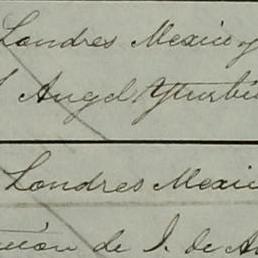 Londres Mexico y
Angel Yturbi
Londres Mexic
de J. de A